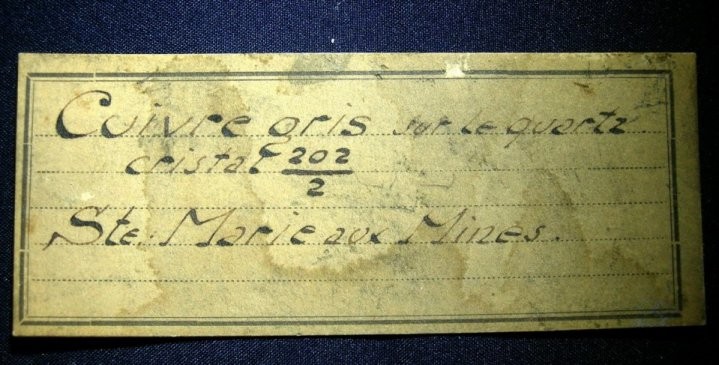 Cuivre gris sur le quartz
cristal 202/2
Ste. Marie aux Mines.